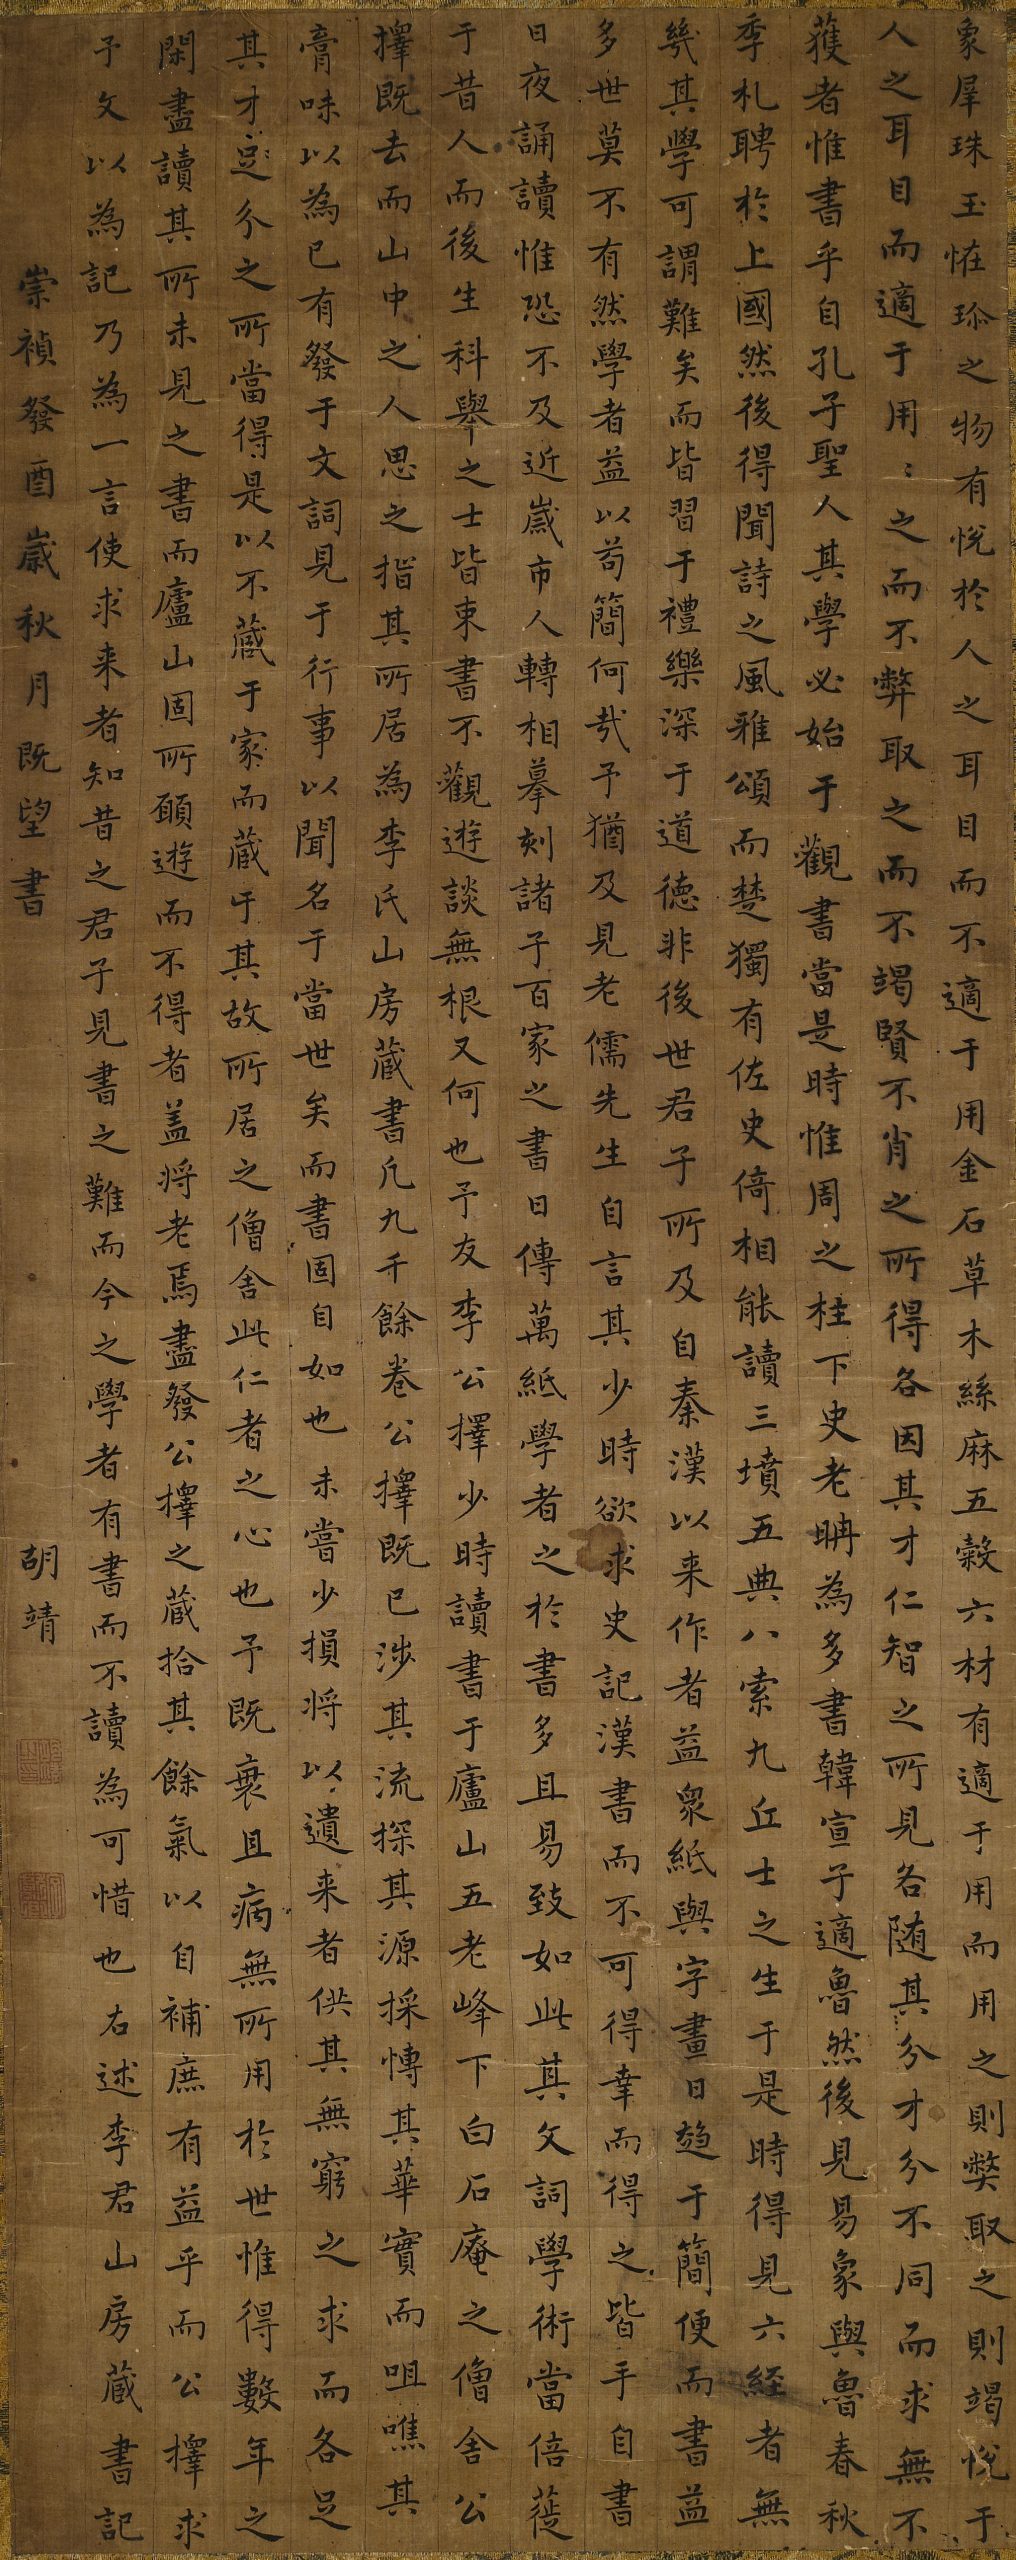 象犀珠玉怪珍之物有悅於人之耳目而不適于用金石草木絲麻五穀六材有適于用而用之則弊取之則竭悅于
人之耳目而適于用〻之而不弊取之而不竭賢不肖之所得各因其才仁智之所見各隨其分才分不同而求無不
獲者惟書乎自孔子聖人其學必始于觀書當是時惟周之柱下史老聃為多書韓宣子適魯然後見易象與魯春秋
季札聘於上國然後得聞詩之風雅頌而楚獨有佐史倚相能讀三墳五典八索九丘士之生于是時得見六經者無
幾其學可謂難矣而皆習于禮樂深于道德非後世君子所及自秦漢以来作者益眾紙與字畫日趋于簡便而書益
多世莫不有然學者益以苟簡何哉予猶及見老儒先生自言其少時欲求史記漢書而不可得幸而得之皆手自書
日夜誦讀惟恐不及近歲市人轉相摹刻諸子百家之書日傳萬紙學者之於書多且易致如此其文詞學術當倍蓰
于昔人而後生科舉之士皆束書不觀遊談無根又何也予友李公擇少時讀書于廬山五老峰下白石庵之僧舍公
擇既去而山中之人思之指其所居為李氏山房藏書凡九千餘卷公擇既已涉其流探其源採慱其華實而咀嚼其
膏味以為已有發于文詞見于行事以聞名于當世矣而書固自如也未嘗少損將以遺来者供其無窮之求而各足
其才足分之所當得是以不藏于家而藏于其故所居之僧舍此仁者之心也予既衰且病無所用於世惟得數年之
閑盡讀其所未見之書而廬山固所願遊而不得者盖將老焉盡發公擇之藏拾其餘氣以自補庶有益乎而公擇求
予文以為記乃為一言使求来者知昔之君子見書之難而今之學者有書而不讀為可惜也右述李君山房藏書記
崇禎癸酉歲秋月既望書
胡靖